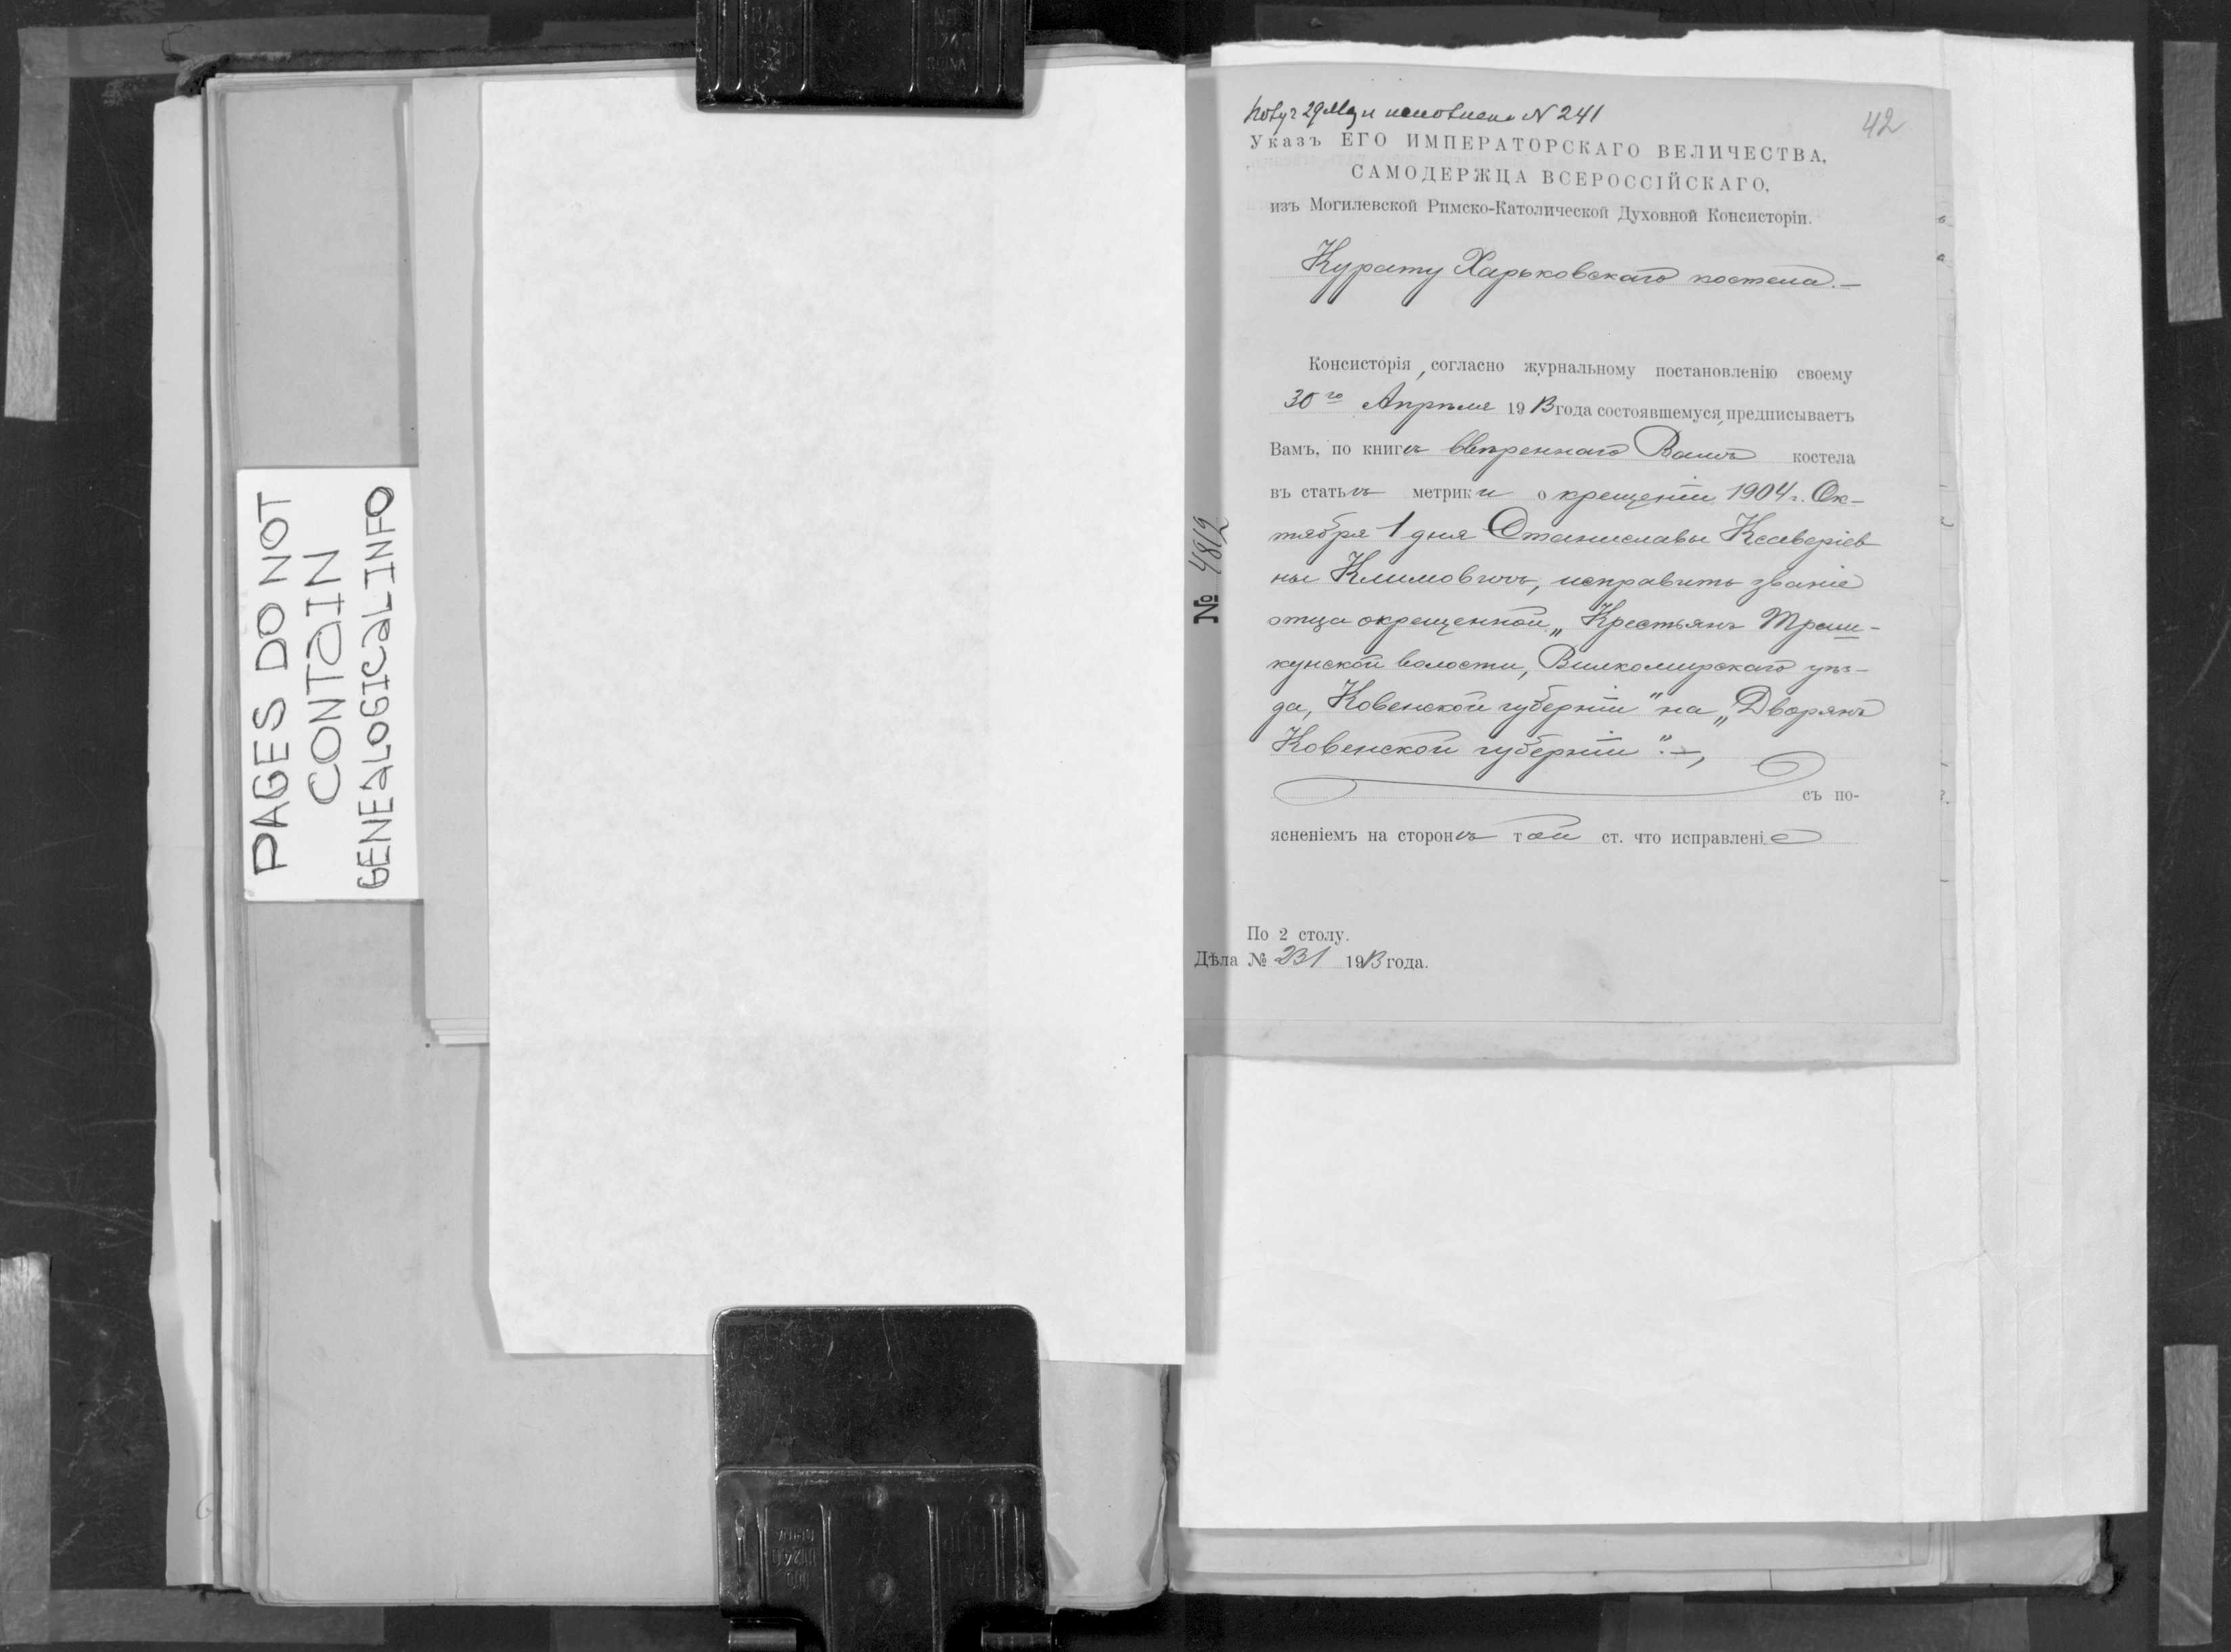 PAGES DO NOT
CONTAIN
GENEALOGICAL INFO
29 Мая исполнено N 241
42
Указъ ЕГО ИМПЕРАТОРСКАГО ВЕЛИЧЕСТВА,
САМОДЕРЖЦА ВСЕРОССІЙСКАГО,
изъ Могилевской Римско-Католической Духовной Консисторіи.
Курату Харьковскаго костела.—
Консисторія, согласно журнальному постановленію своему
30го Апрѣля 1913 года состоявшемуся, предписываетъ
Вамъ, по книгѣ ввѣреннаго Вамъ костела
въ статьѣ метрики о крещеніи 1904 г. Ок-
тября 1 дня Станиславы Ксаверіев
ны Климовичъ, исправить званіе
отца окрещенной „Крестьянъ Траш-
кунской волости, Вилкомирскаго уѣз-
да, Ковенской губерніи" на „Дворянъ
Ковенской губерніи".—,
съ по-
ясненіемъ на сторонѣ той ст. что исправленіе
№ 4812
По 2 столу.
Дѣла № 231 1913 года.